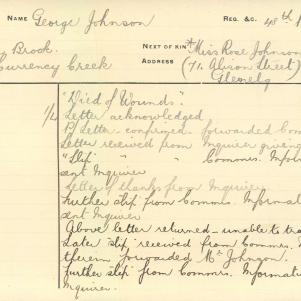 NAME George Johnson REG. &C. 48th
Brook.
Currency Creek
NEXT OF KIN Miss Rose Johnson
ADDRESS (71 Albion Street)
Glenelg
"Died of Wounds".
1/4 Letter acknowledged
B Letter confirmed. forwarded Com
Letter received from Inquirer giving
"Slip" " " Commrs. Infor
sent Inquirer
Letter of thanks from Inquirer
Further slip from Commrs. Informat
sent Inquirer
Above letter returned – unable to tra
Later slip received from Commrs.
therein forwarded Mr Johnson.
further slip from Commrs. Informati
Inquirer.